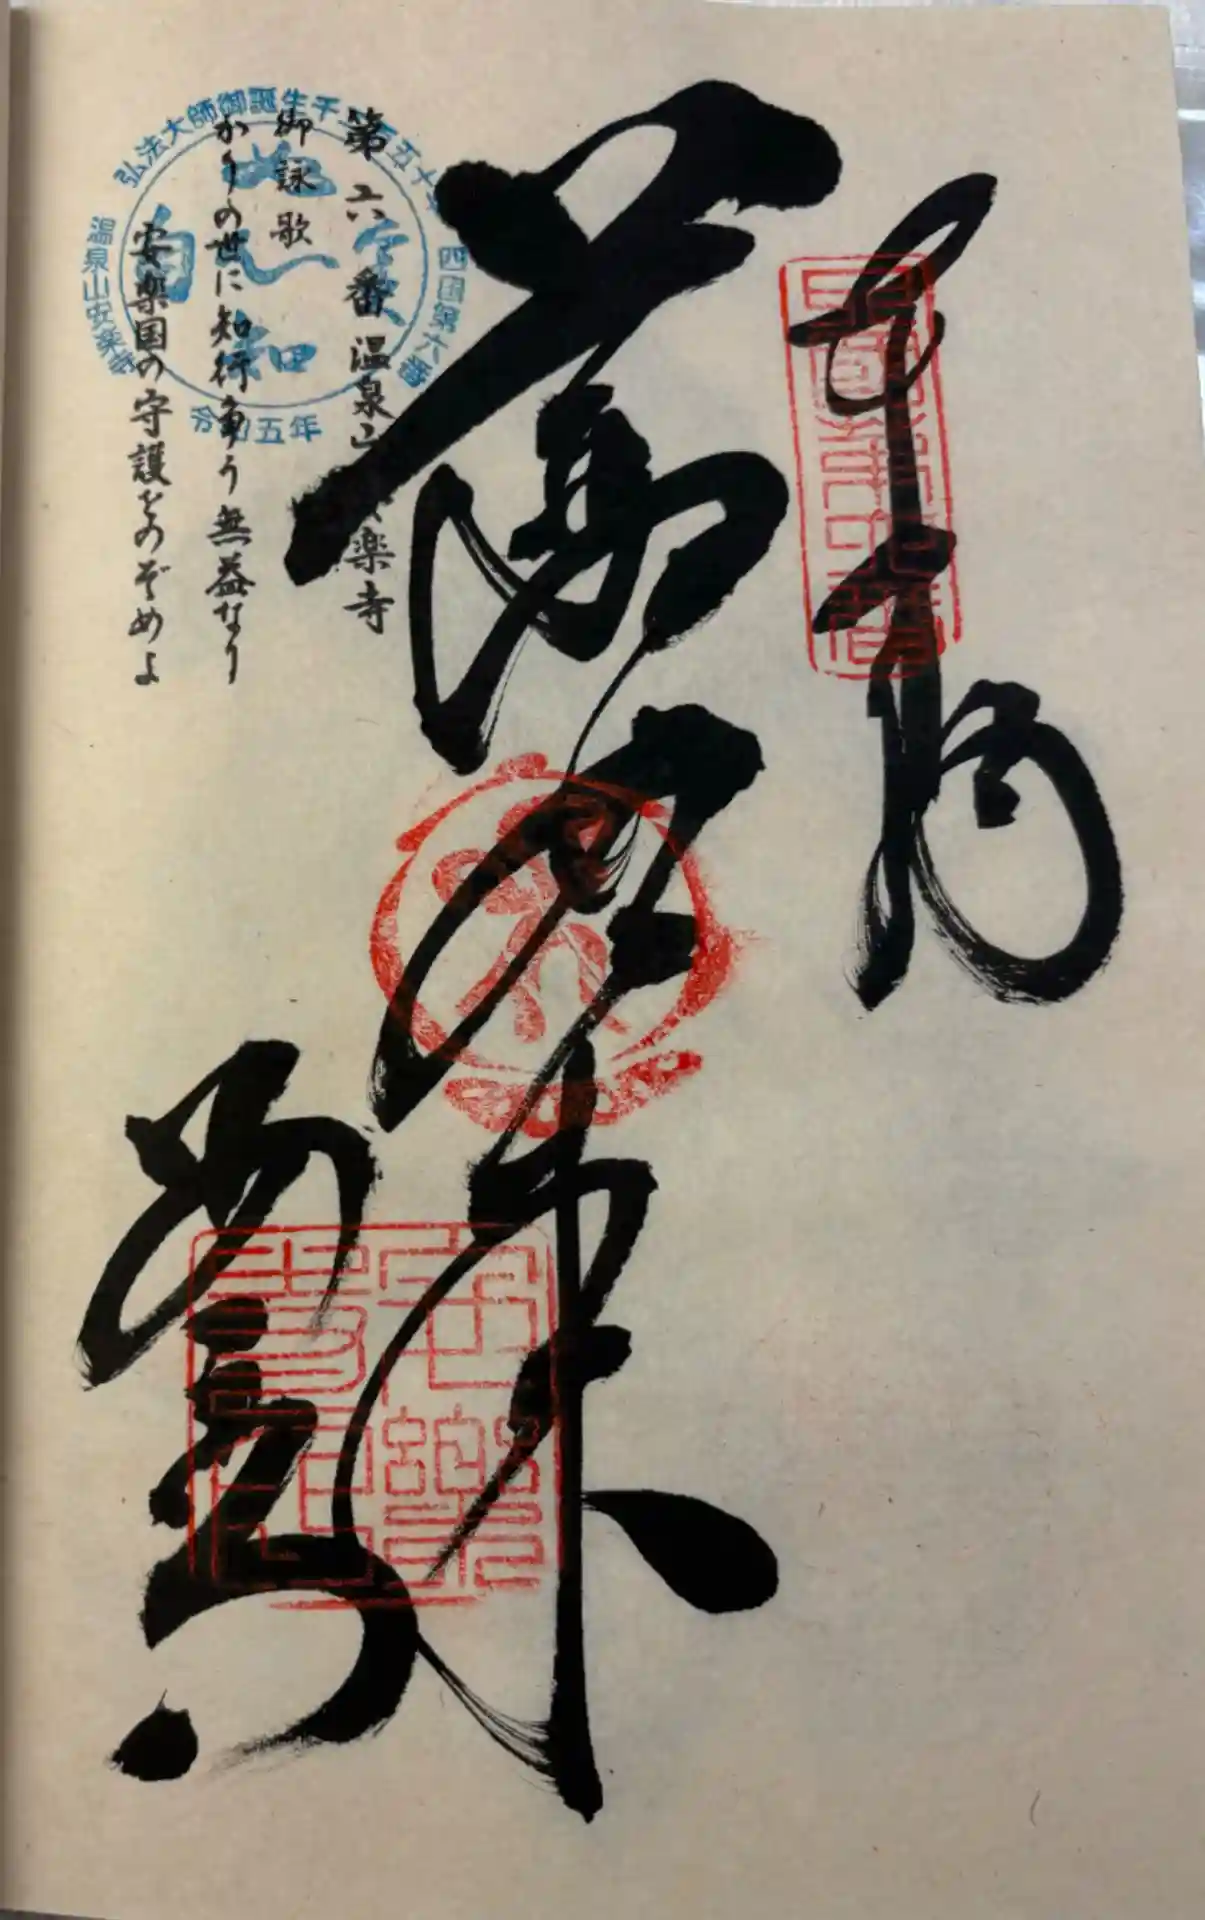 奉納
薬師如来
安楽寺
四國第六番
第六番温泉山安楽寺
御詠歌
かりの世に知行争う無益なり
安楽国の守護をのぞめよ
弘法大師御誕生千二百五十年
四国第六番
温泉山安楽寺
令和五年
如実知自心